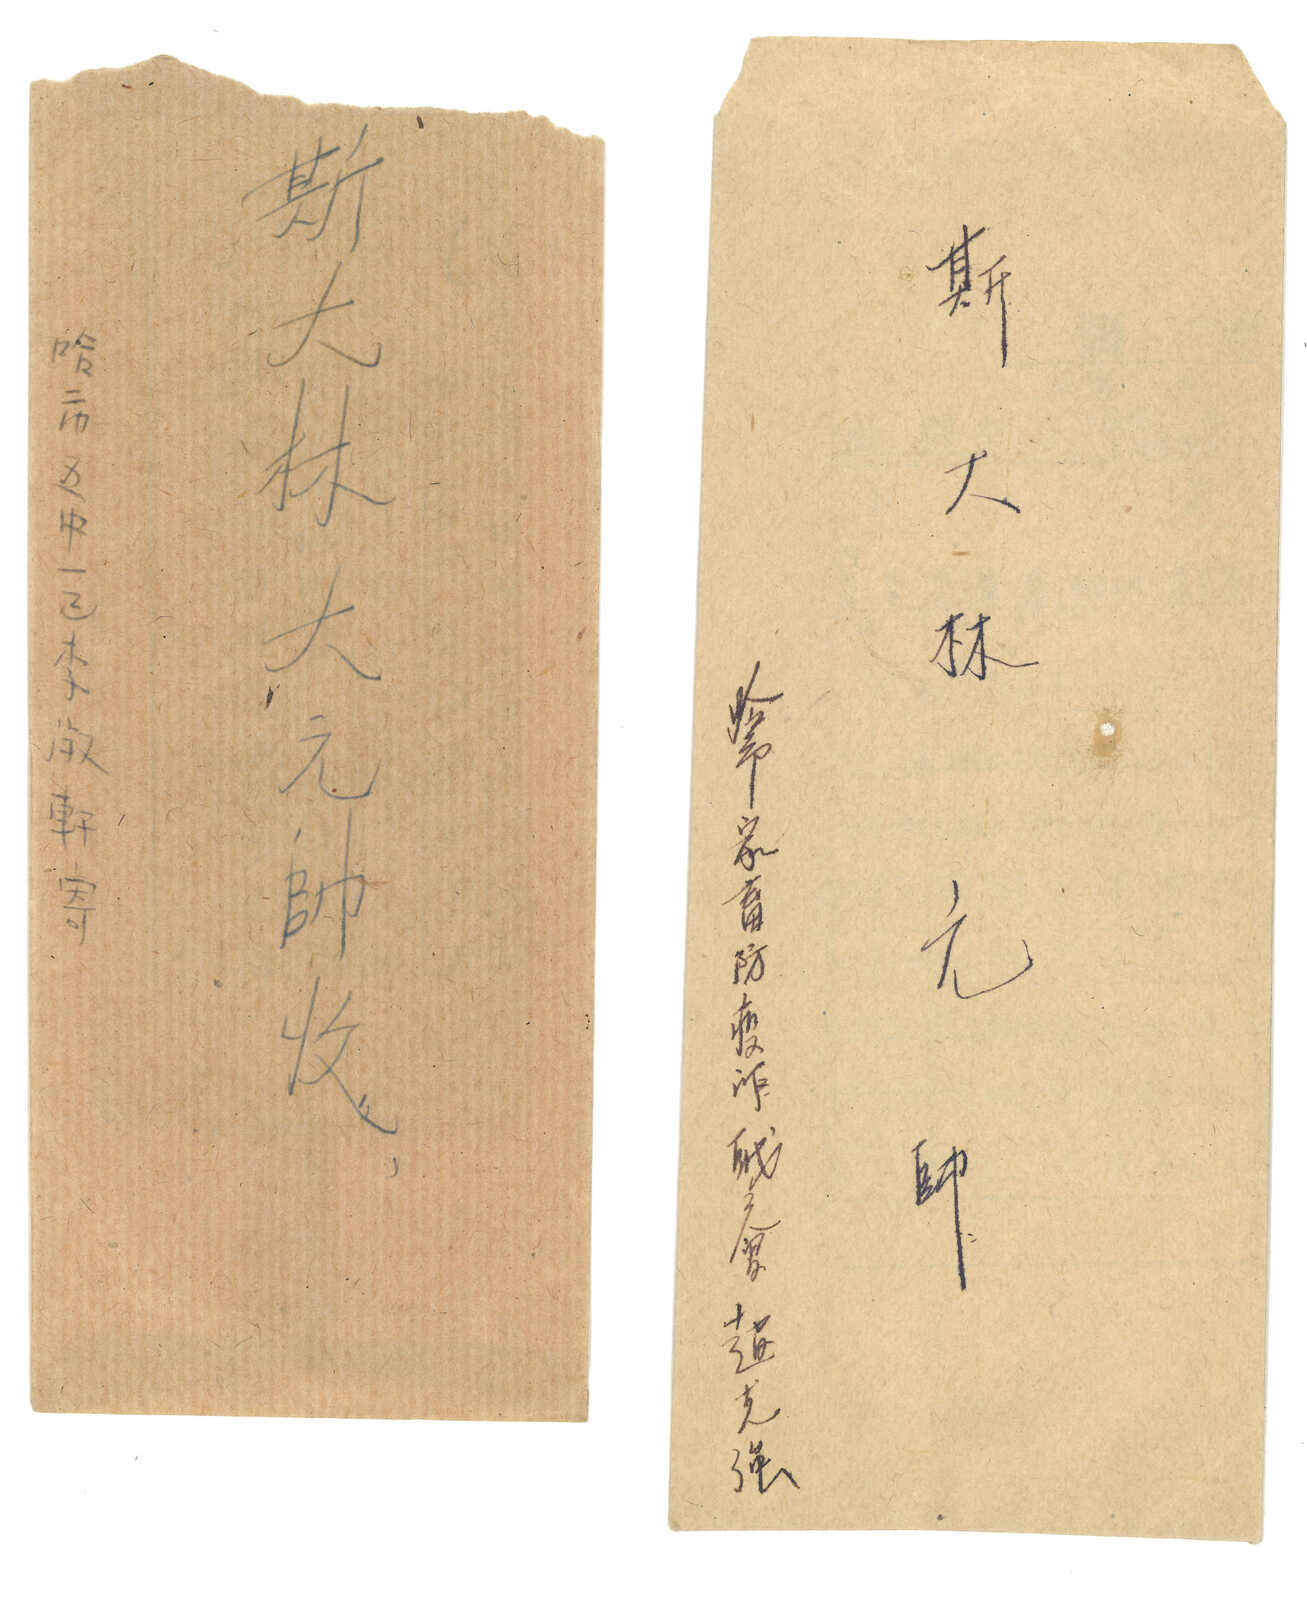 斯大林大元帥收
哈市五中一已李啟軒寄
斯大林元帥
哈市家畜防疫所職工會 趙克強